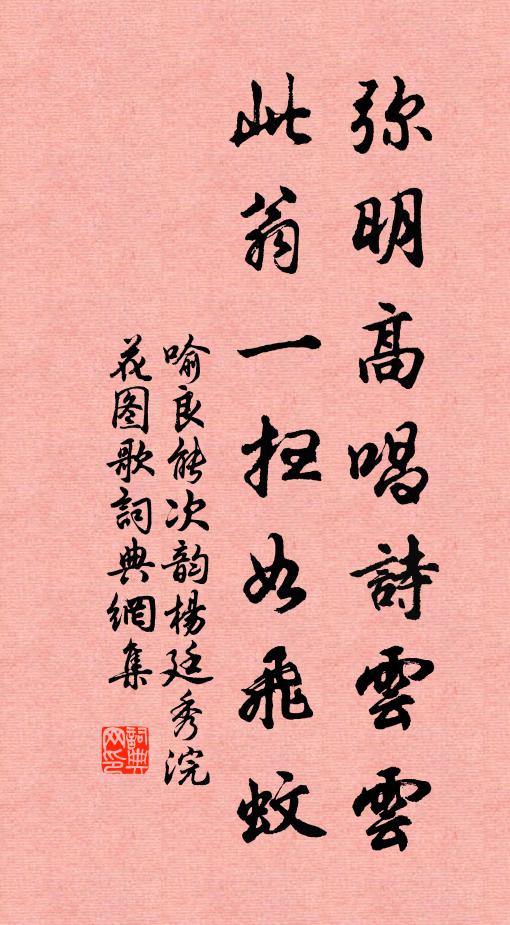 弥明高唱詩雲雲
此翁一扫如飛蚊
喻良能次韵楊廷秀浣
花图歌詞典網集
詞典网印